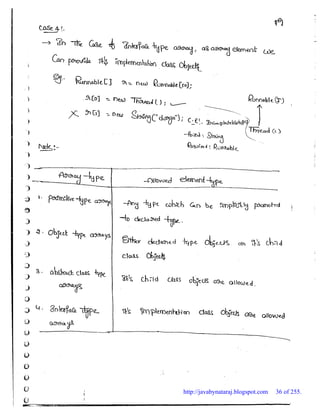 19
Case 4 :-
→ In the Case of Interface type array, as array element we
Can provide it's implementation class Objects.
Eg. Runnable[ ] r = new Runnable[10];
r[0] = new Thread( ); ✓
Runnable (I)
X r[1] = new String("durga"); C.E!. Incompatible types
Thread (c)
found : String
Required : Runnable.
Note:-
Array-type
Allowed element-type
1. primitive-type arrays
-Any type which Can be implicitly promoted
-to declared -type.
2. Object type arrays
Either declared type objects or it's child
class Objects
3. abstract class type
arrays
It's child class objects are allowed.
4. Interface type
arrays
It's implementation class Objects are allowed
http://javabynataraj.blogspot.com 36 of 255.